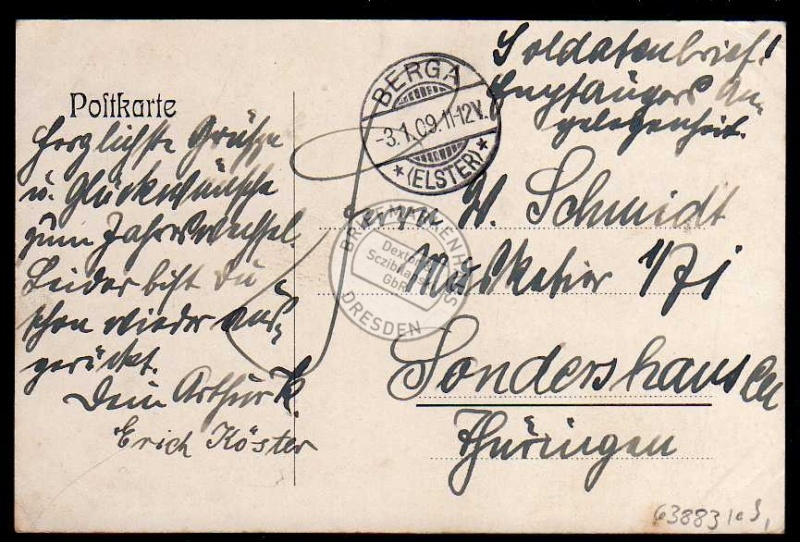 Postkarte
Herzlichste Grüße
u. Glückwünsche
zum Jahreswechsel
Leider bist Du
schon wieder aus-
gerückt.
Dein Arthur K.
Erich Köster
BERGA
-3.1.09.11-12V.
*(ELSTER)*
Soldatenbrief!
Empfängers An-
gelegenheit.
Herrn W. Schmidt
Musketier 1/71
Sondershausen
Thüringen
BRIEFMARKENHAUS
Dextor
GbR
DRESDEN